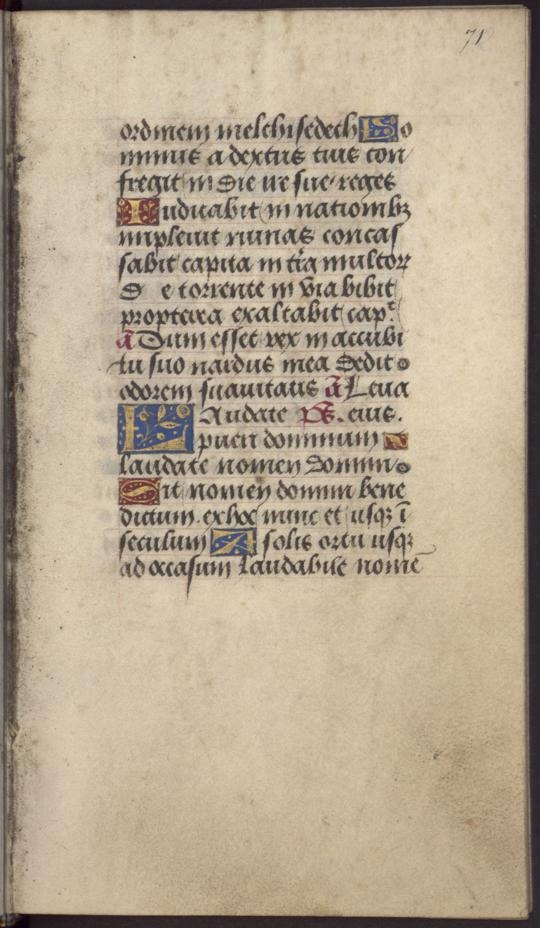 71
ordinem melchisedech Do
minus a dextris tuis con
fregit in die ire sue reges
Iudicabit in nationibꝫ
impleuit ruinas concas
sabit capita in tr̃a multoꝝ
De torrente in via bibit
propterea exaltabit cap̃
ã Dum esset rex in accubi
tu suo nardus mea dedit
odorem suauitatis ã Leua
Laudate p̃s. eius.
pueri dominum
laudate nomen domini
Sit nomen domini bene
dictum. ex hoc nunc et usqꝫ ĩ
seculum A solis ortu usqꝫ
ad occasum laudabile nomẽ